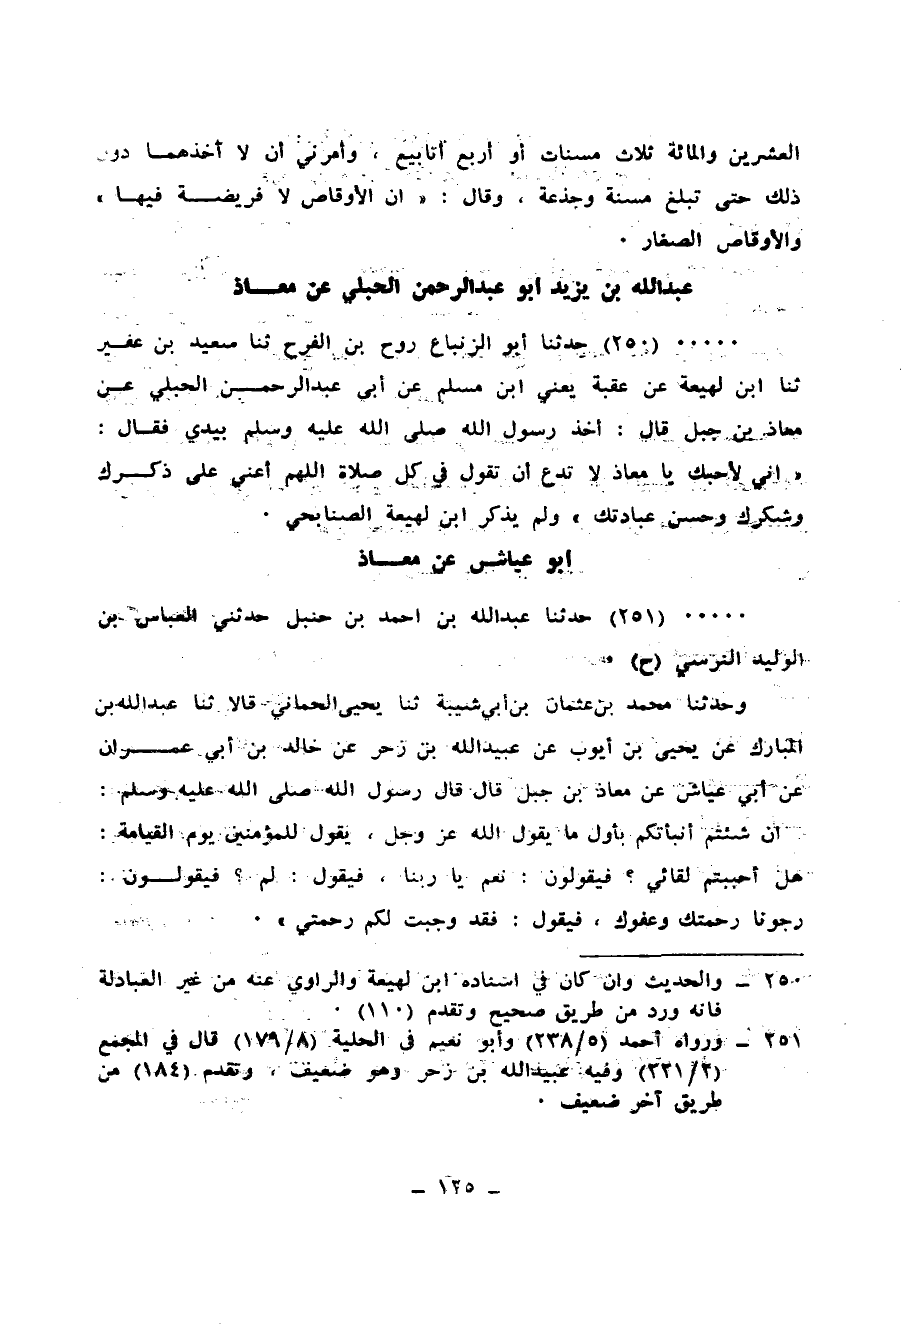 العشرين والمائة ثلاث مسنات أو أربع أتابيع ، وأمرني أن لا أخذهمـا دون
ذلك حتى تبلغ مسنة وجذعة ، وقال : « ان الأوقاص لا فريضـــة فيهـا »
والأوقاص الصغار ٠
عبدالله بن يزيد ابو عبدالرحمن الحبلي عن معـــاذ
٠٠٠٠٠ (٢٥٠) حدثنا أبو الزنباع روح بن الفرح ثنا سعيد بن عفـير
ثنا ابن لهيعة عن عقبة يعني ابن مسلم عن أبي عبدالرحمـــن الحبلي عـن
معاذ بن جبل قال : أخذ رسول الله صلى الله عليه وسلم بيدي فقـال :
« اني لأحبك يا معاذ لا تدع أن تقول في كل صلاة اللهم أعني على ذكـــرك
وشكرك وحسن عبادتك » ولم يذكر ابن لهيعة الصنابحي ٠
ابو عياش عن معـــاذ
٠٠٠٠٠ (٢٥١) حدثنا عبدالله بن احمد بن حنبل حدثني العباس بن
الوليد النرسي (ح) ٠
وحدثنا محمد بن عثمان بن أبي شيبة ثنا يحيى الحماني قالا ثنا عبدالله بن
المبارك عن يحيى بن أيوب عن عبيدالله بن زحر عن خالد بن أبي عمـــران
عن أبي عياش عن معاذ بن جبل قال قال رسول الله صلى الله عليه وسلم :
ان شئتم أنبأتكم بأول ما يقول الله عز وجل ، يقول للمؤمنين يوم القيامة :
هل أحببتم لقائي ؟ فيقولون : نعم يا ربنا ، فيقول : لم ؟ فيقولـــون :
رجونا رحمتك وعفوك ، فيقول : فقد وجبت لكم رحمتي » ٠
٢٥٠ ـ والحديث وان كان في اسناده ابن لهيعة والراوي عنه من غير العبادلة
فانه ورد من طريق صحيح وتقدم (١١٠) ٠
٢٥١ ـ ورواه أحمد (٢٣٨/٥) وأبو نعيم في الحلية (١٧٩/٨) قال في المجمع
(٣٢١/٢) وفيه عبيدالله بن زحر وهو ضعيف ، وتقدم (١٨٤) من
طريق آخر ضعيف ٠
ـ ١٢٥ ـ